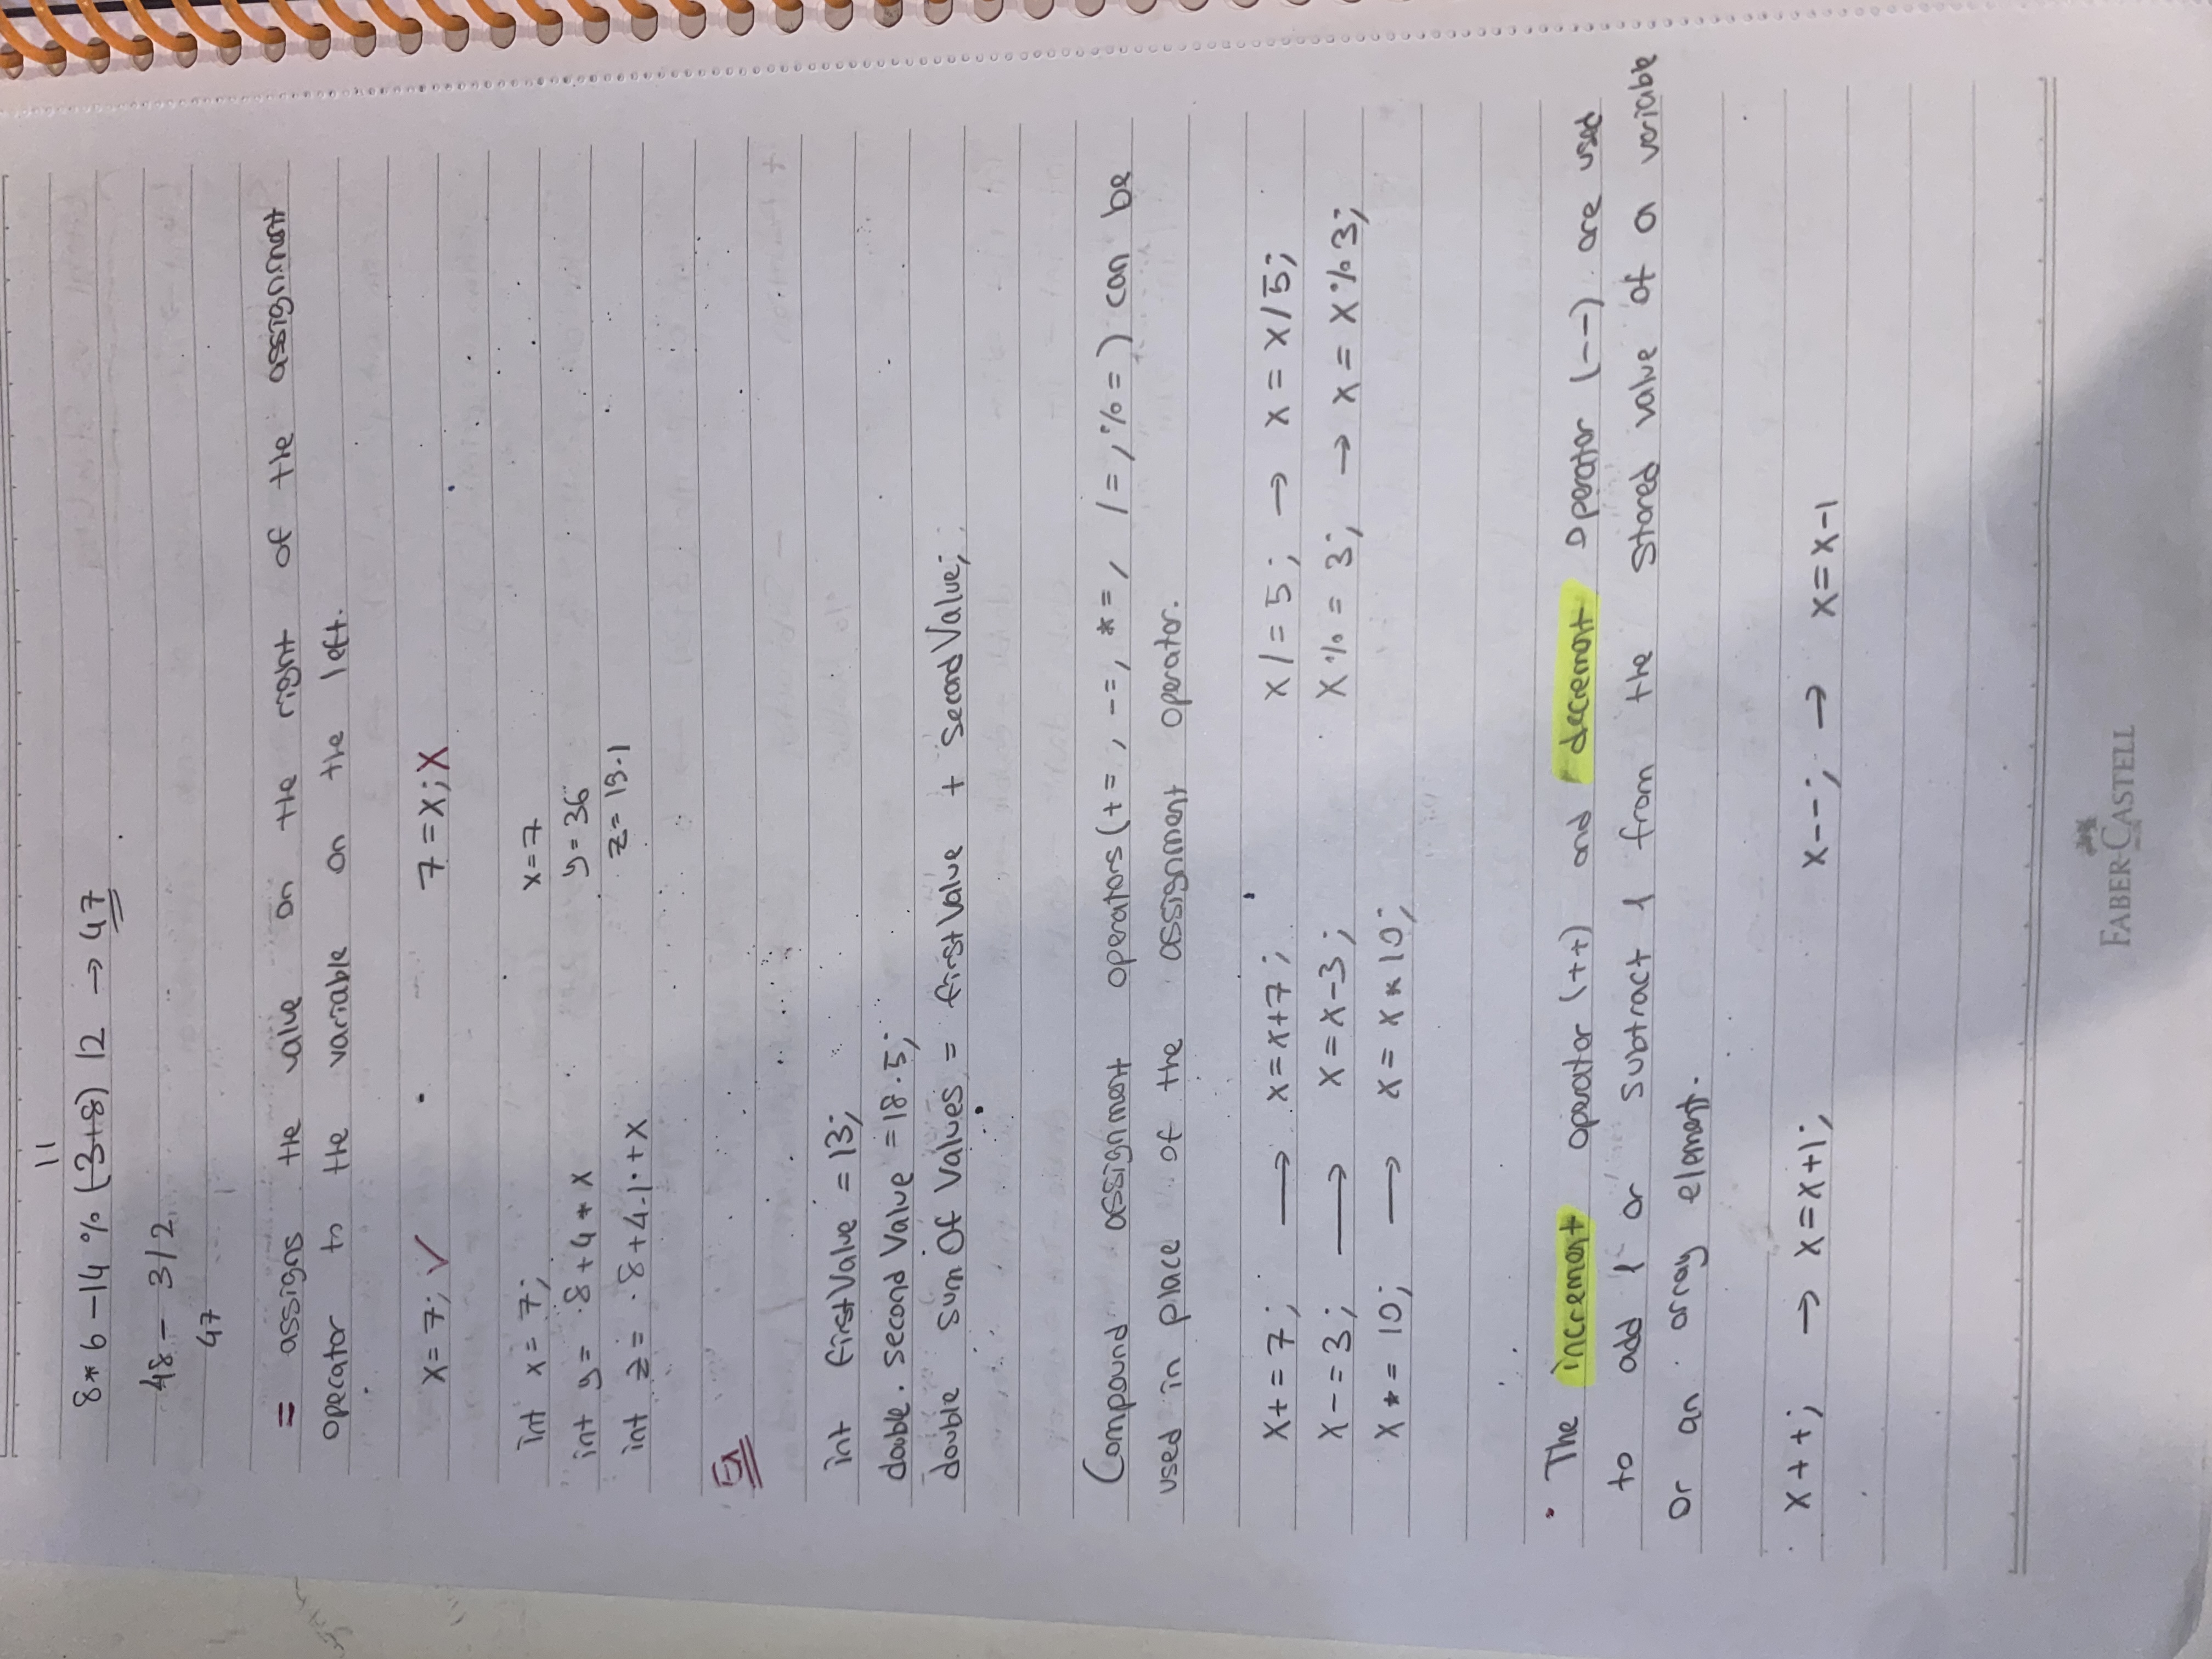 11
8* 6 -14 % (3+8) /2 → 47
48 - 3/2
47
= assigns the value on the right of the assignment
operator to the variable on the left.
x = 7; ✓ 7 = x; X
int x = 7; x = 7
int y = 8 + 4 * x y = 36
int z = 8 + 4.1 + x z = 19.1
Ex
int firstValue = 13;
double secondValue = 18.5;
double sumOfValues = firstValue + secondValue;
Compound assignment operators (+= , -=, *= , /= , %= ) can be
used in place of the assignment operator.
x += 7; → x = x+7; x /= 5; → x = x/5;
x -= 3; → x = x-3; x %= 3; → x = x%3;
x *= 10; → x = x*10;
• The increment operator (++) and decrement operator (--) are used
to add 1 or subtract 1 from the stored value of a variable
or an array element.
x++; → x=x+1; x--; → x=x-1
FABER-CASTELL